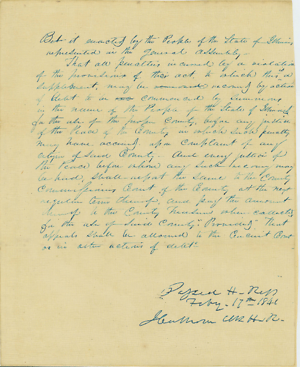 Be it enacted by the People of the State of Illinois,
represented in the General Assembly—
That all penalties incurred by a violation
of the provisions of this act, to which this is a
supplement, may be recovered by action
of debt to be commenced by summons
in the name of the People of the State of Illinois,
for the use of the proper County, before any justice
of the Peace of the County, in which such penalty
may have accrued upon complaint of any
citizen of such County. And every justice of
the Peace before whom any such recovery may
be had, shall report the same to the County
Commissioners Court of the County at the next
regular term thereof, and pay the amount
to the County Treasurer when collected
for the use of such County: Provided, that
appeals shall be allowed to the Circuit Court
as in other actions of debt.
Passed H. Reps
Feby. 17th 1841
Clk H.R.